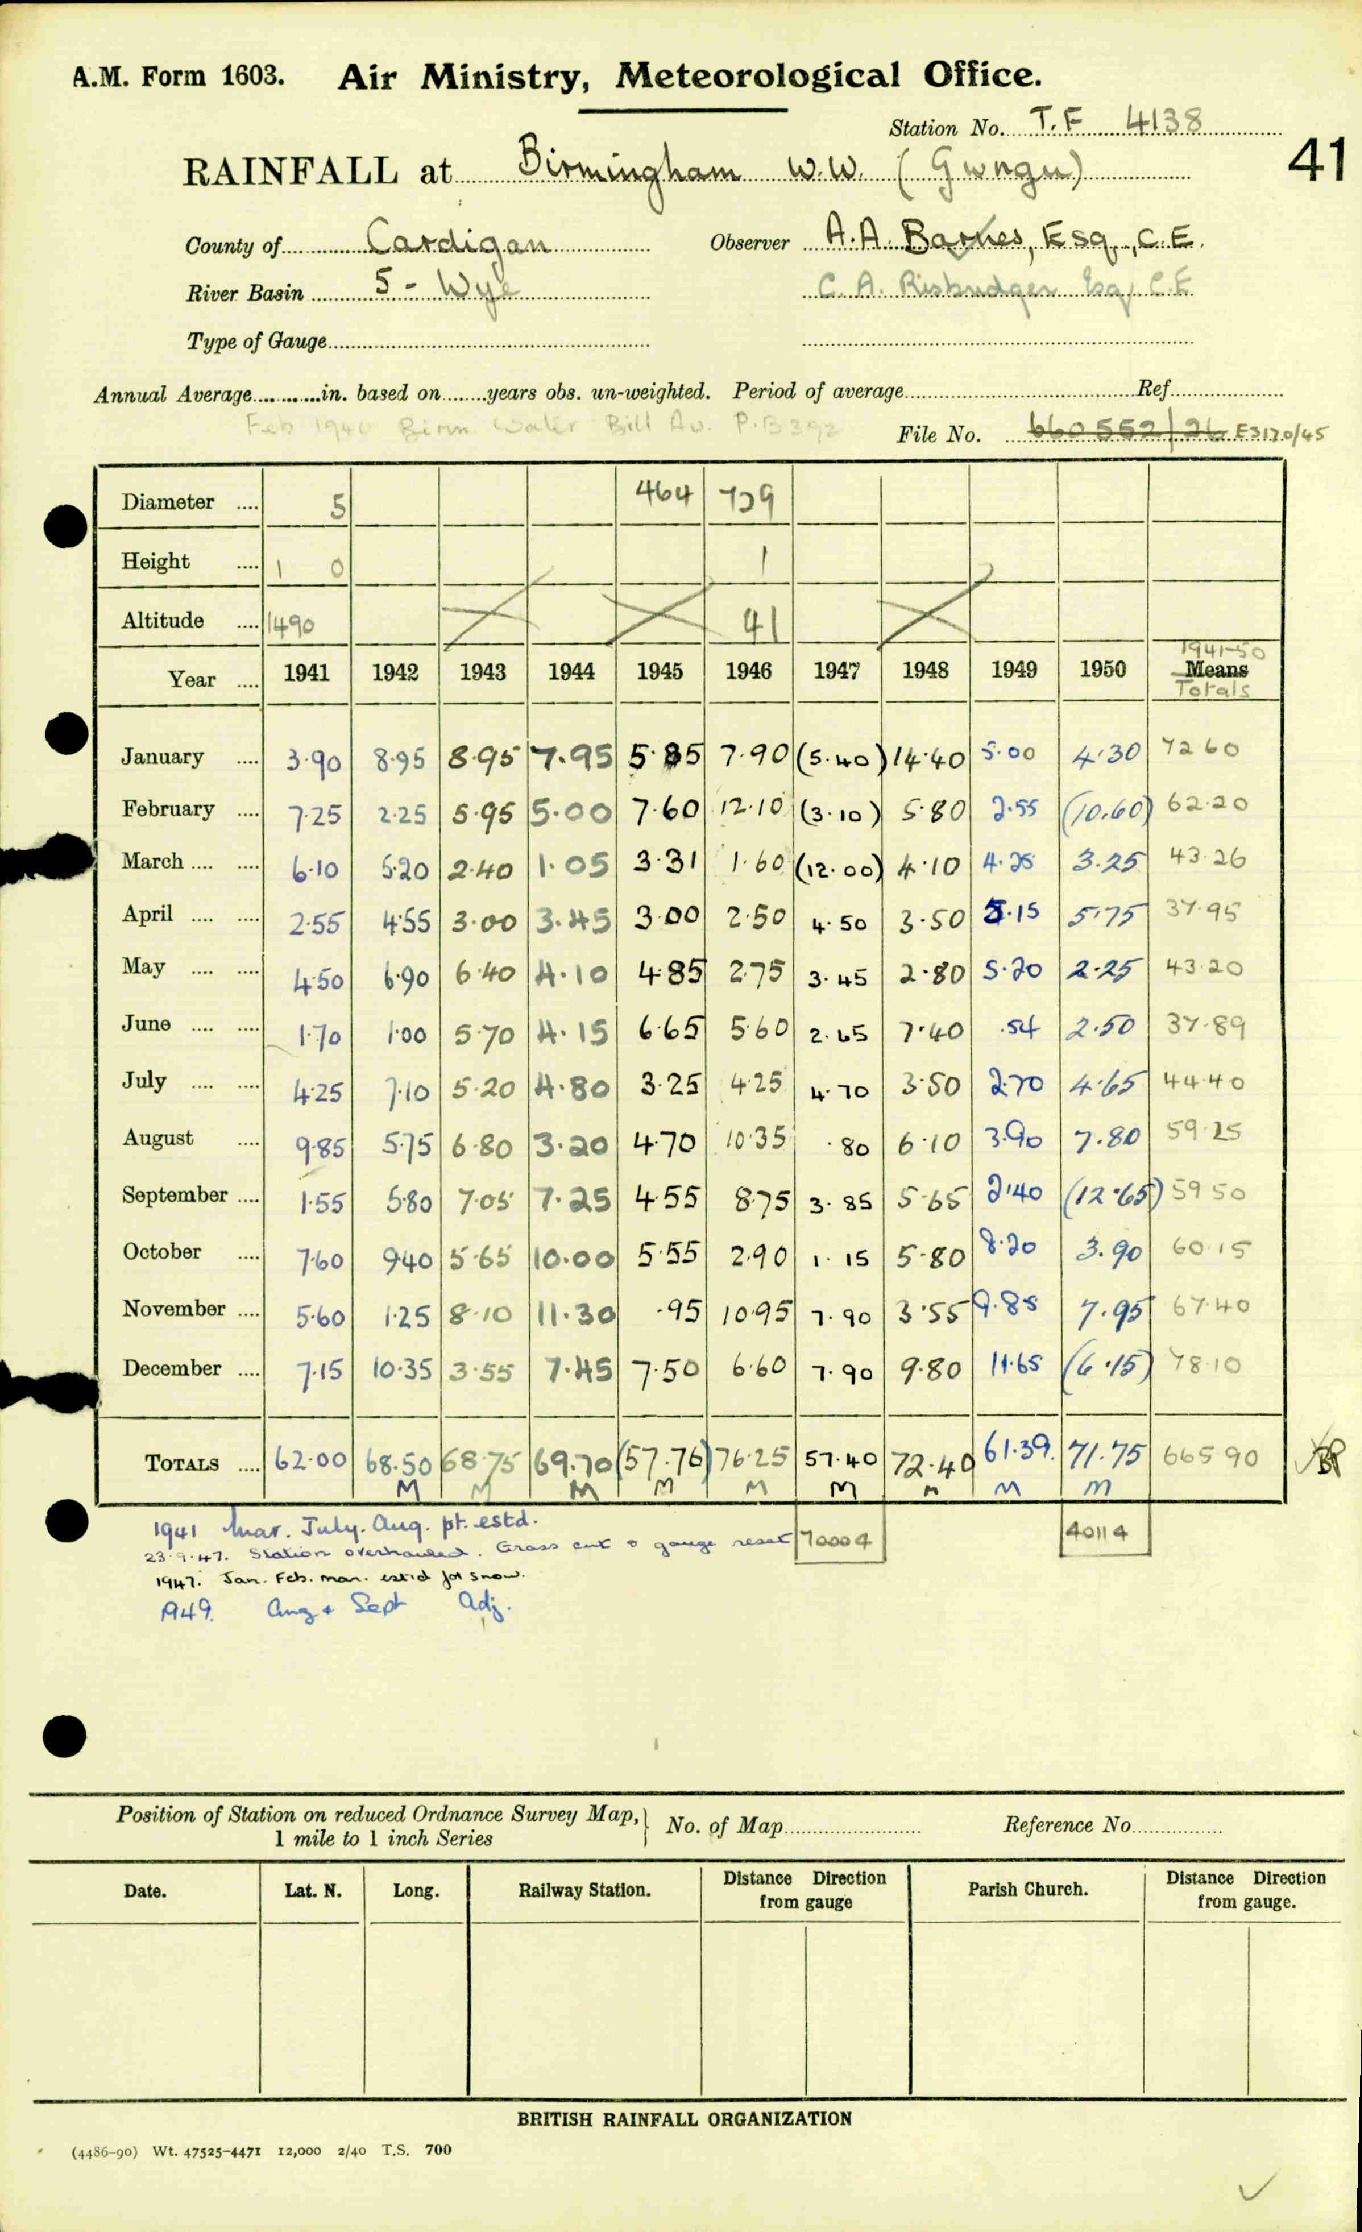 A.M. Form 1603. Air Ministry, Meteorological Office.
Station No. T.F 4138
41
RAINFALL at Birmingham W.W. (Gwngu)
County of Cardigan Observer A.A. Barnes, Esq., C.E.
River Basin 5 - Wye C. A. Risbridger Esq, C.E
Type of Gauge
Annual Average in. based on years obs. un-weighted. Period of average Ref.
Feb 1940 Birm. Water Bill Av. P.B392
File No. 660552/26 E3170/45
Diameter 5 464 729
Height 1 0 1
Altitude 1490 41
1941-50
Year 1941 1942 1943 1944 1945 1946 1947 1948 1949 1950 Means
Totals
January 3.90 8.95 8.95 7.95 5.85 7.90 (5.40) 14.40 5.00 4.30 72.60
February 7.25 2.25 5.95 5.00 7.60 12.10 (3.10) 5.80 2.55 (10.60) 62.20
March 6.10 5.20 2.40 1.05 3.31 1.60 (12.00) 4.10 4.25 3.25 43.26
April 2.55 4.55 3.00 3.45 3.00 2.50 4.50 3.50 5.15 5.75 37.95
May 4.50 6.90 6.40 4.10 4.85 2.75 3.45 2.80 5.20 2.25 43.20
June 1.70 1.00 5.70 4.15 6.65 5.60 2.65 7.40 .54 2.50 37.89
July 4.25 7.10 5.20 4.80 3.25 4.25 4.70 3.50 2.70 4.65 44.40
August 9.85 5.75 6.80 3.20 4.70 10.35 .80 6.10 3.90 7.80 59.25
September 1.55 5.80 7.05 7.25 4.55 8.75 3.85 5.65 2.40 (12.65) 59.50
October 7.60 9.40 5.65 10.00 5.55 2.90 1.15 5.80 8.20 3.90 60.15
November 5.60 1.25 8.10 11.30 .95 10.95 7.90 3.55 9.85 7.95 67.40
December 7.15 10.35 3.55 7.45 7.50 6.60 7.90 9.80 11.65 (6.15) 78.10
TOTALS 62.00 68.50 68.75 69.70 (57.76) 76.25 57.40 72.40 61.39 71.75 665.90
M M M M M M M M M
1941 Mar. July. Aug. pt. estd.
23.9.47. Station overhauled. Grass cut & gauge reset 70004 40114
1947. Jan. Feb. Mar. est'd for snow.
1949. Aug + Sept Adj.
Position of Station on reduced Ordnance Survey Map, No. of Map Reference No.
1 mile to 1 inch Series
Date. Lat. N. Long. Railway Station. Distance Direction from gauge Parish Church. Distance Direction from gauge.
BRITISH RAINFALL ORGANIZATION
(4486-90) Wt. 47525-4471 12,000 2/40 T.S. 700